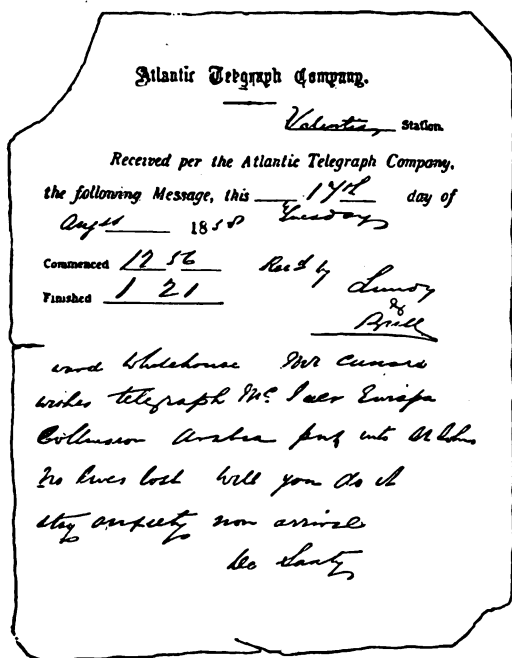 Atlantic Telegraph Company.
Valentia Station.
Received per the Atlantic Telegraph Company,
the following Message, this 17th day of
Augst 1858 Tuesday
Commenced 12 56 Recd by
Finished 1 21 Lundy
&
Whitehouse Mr Cunard
wishes telegraph McIver Europa
Collision Arabia put into St Johns
No lives lost Will you do it
stay anxiety non arrival
De Sauty